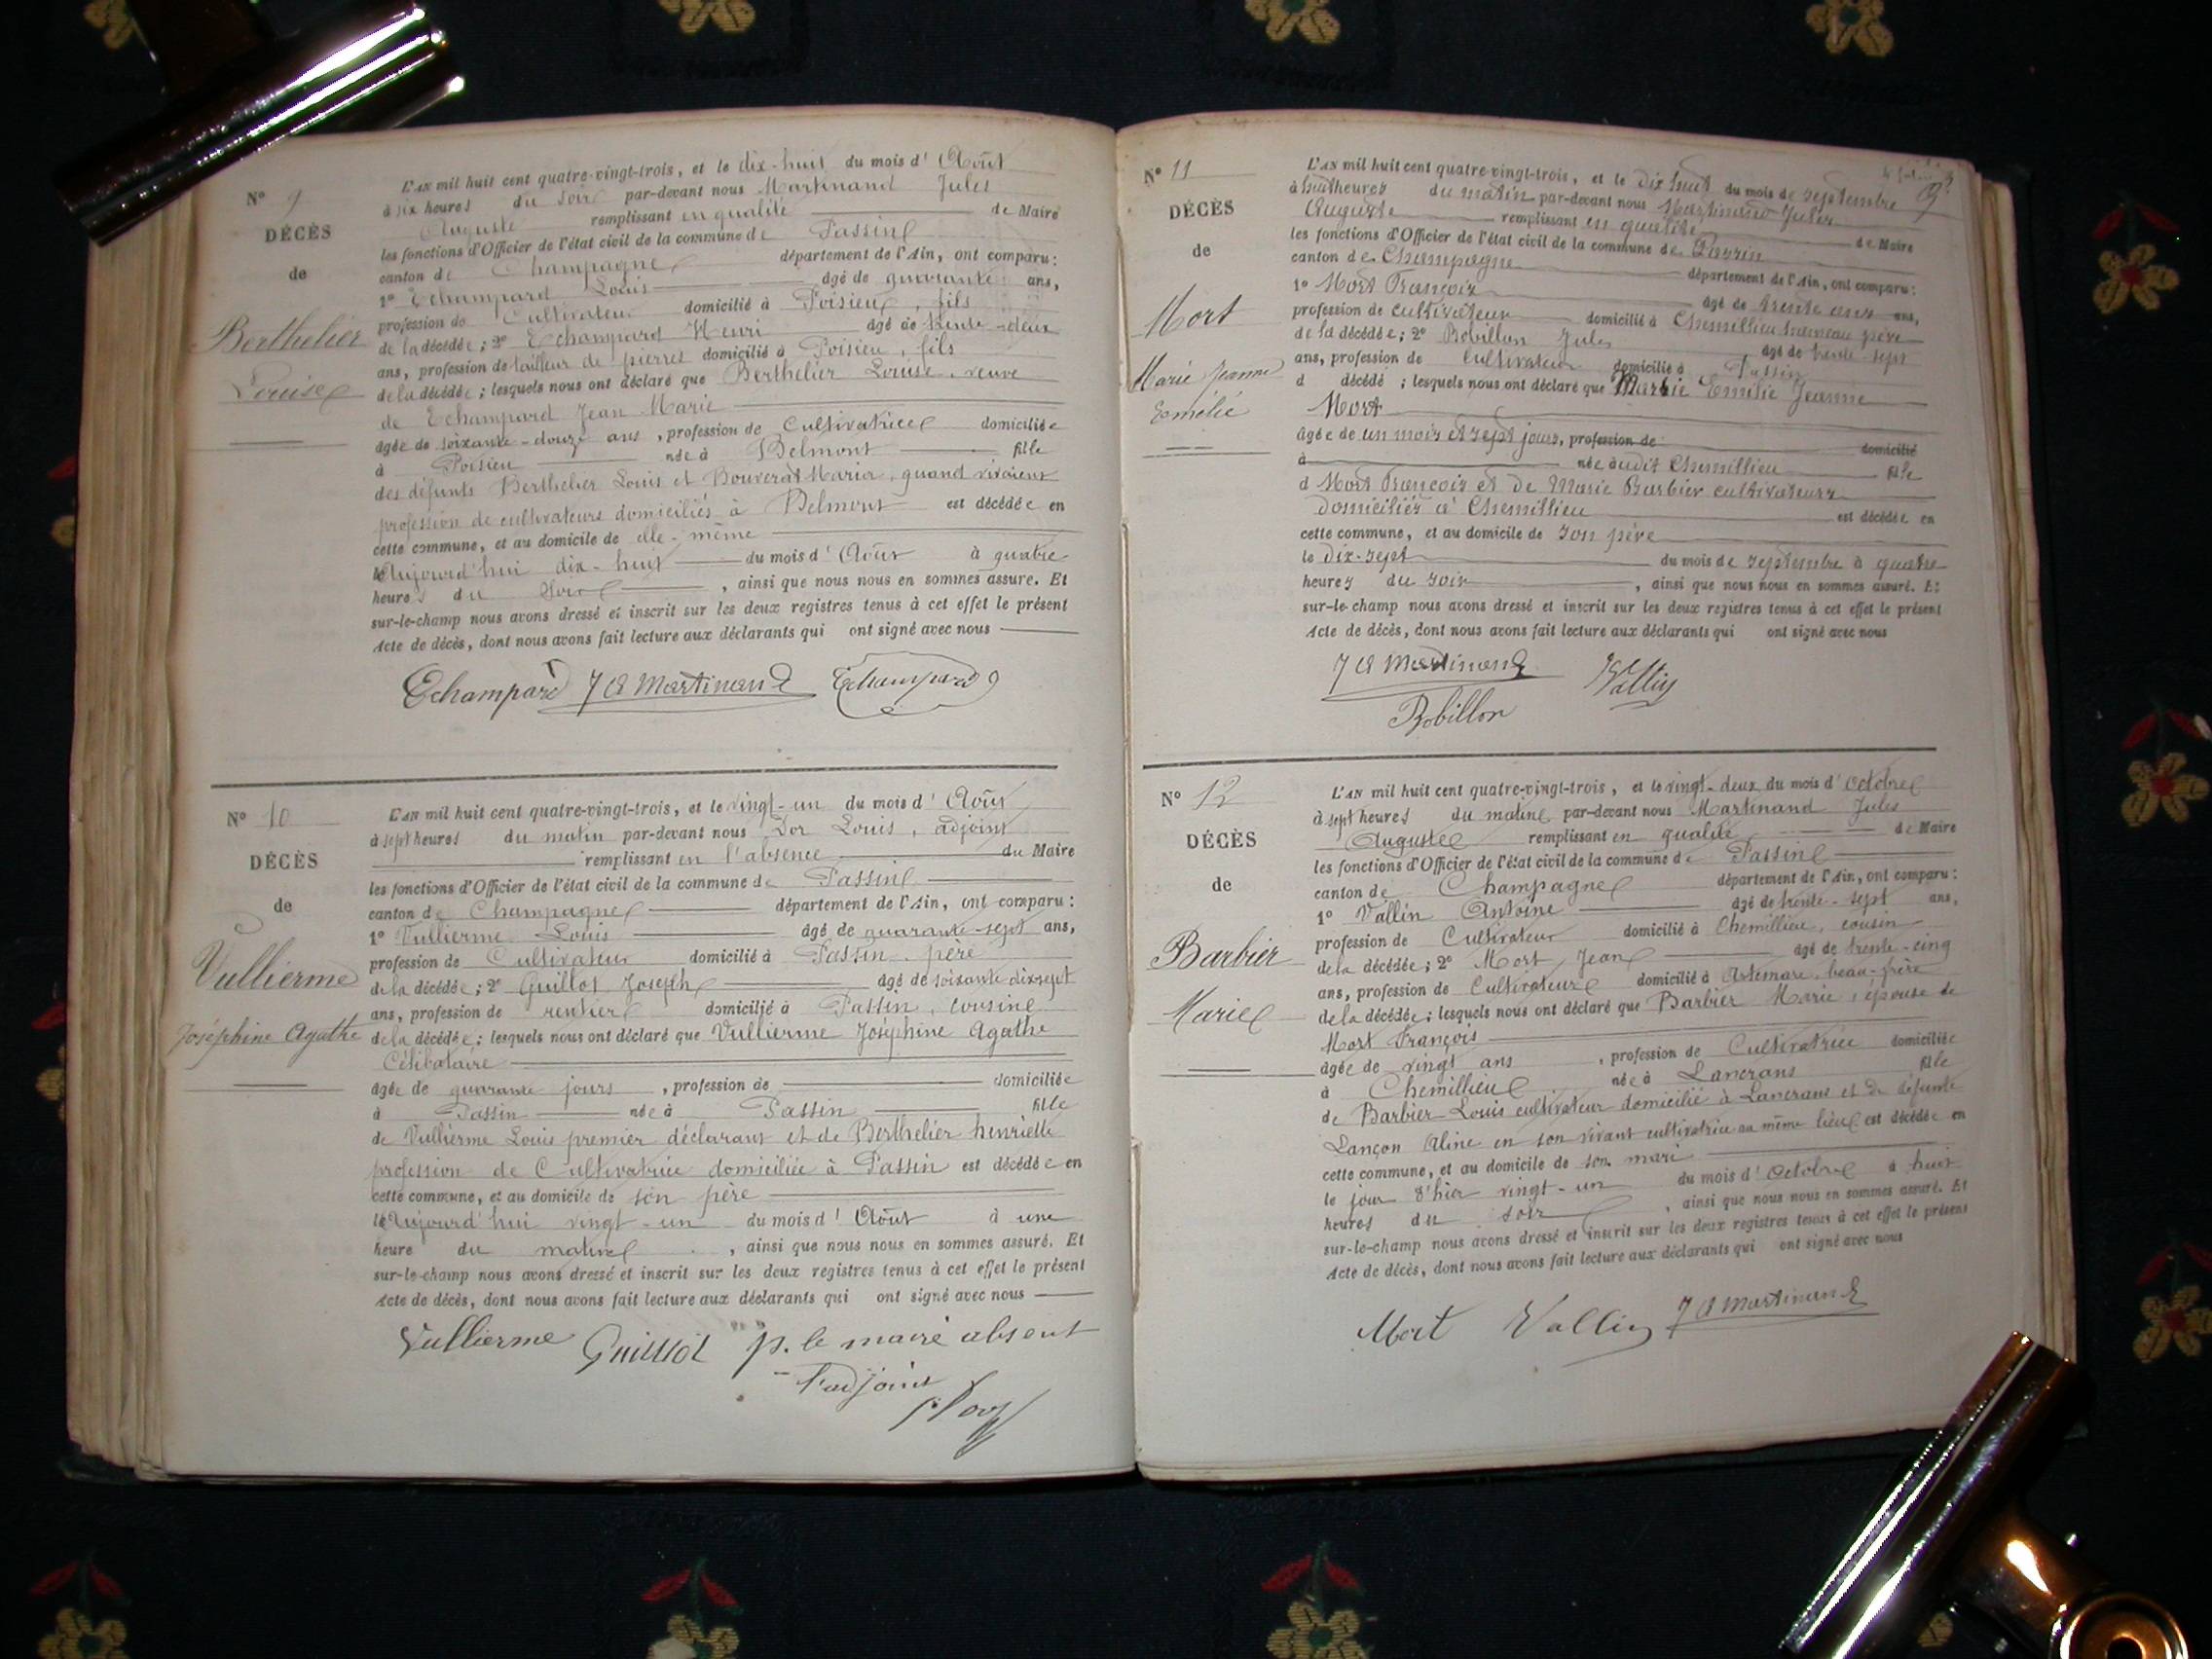 N° 9
DÉCÈS
de
Berthelier
Louise
L'AN mil huit cent quatre-vingt-trois, et le dix-huit du mois d' Août
à six heures du soir par-devant nous Martinand Jules
Auguste remplissant en qualité de Maire
les fonctions d'Officier de l'état civil de la commune de Passin
canton de Champagne département de l'Ain, ont comparu :
1° Echampard Louis âgé de quarante ans,
profession de Cultivateur domicilié à Poisieu, fils
de la décédée ; 2° Echampard Henri âgé de trente-deux
ans, profession de tailleur de pierres domicilié à Poisieu, fils
de la décédée ; lesquels nous ont déclaré que Berthelier Louise, veuve
de Echampard Jean Marie
âgée de soixante-douze ans, profession de Cultivatrice domiciliée
à Poisieu née à Belmont fille
des défunts Berthelier Louis et Bouverat Maria, quand vivaient
profession de cultivateurs domiciliés à Belmont est décédée en
cette commune, et au domicile de elle-même
Aujourd'hui dix-huit du mois d' Août à quatre
heures du Soir, ainsi que nous nous en sommes assuré. Et
sur-le-champ nous avons dressé et inscrit sur les deux registres tenus à cet effet le présent
Acte de décès, dont nous avons fait lecture aux déclarants qui ont signé avec nous
Echampard J A Martinand Echampard
N° 10
DÉCÈS
de
Vullierme
Joséphine Agathe
L'AN mil huit cent quatre-vingt-trois, et le vingt-un du mois d' Août
à sept heures du matin par-devant nous Dor Louis, adjoint
remplissant en l'absence du Maire
les fonctions d'Officier de l'état civil de la commune de Passin
canton de Champagne département de l'Ain, ont comparu :
1° Vullierme Louis âgé de quarante-sept ans,
profession de Cultivateur domicilié à Passin, père
de la décédée ; 2° Guillot Joseph âgé de soixante dix sept
ans, profession de rentier domicilié à Passin, cousin
de la décédée ; lesquels nous ont déclaré que Vullierme Joséphine Agathe
Célibataire
âgée de quarante jours, profession de domiciliée
à Passin née à Passin fille
de Vullierme Louis premier déclarant et de Berthelier henriette
profession de Cultivatrice domiciliée à Passin est décédée en
cette commune, et au domicile de son père
Aujourd'hui vingt-un du mois d' Août à une
heure du matin, ainsi que nous nous en sommes assuré. Et
sur-le-champ nous avons dressé et inscrit sur les deux registres tenus à cet effet le présent
Acte de décès, dont nous avons fait lecture aux déclarants qui ont signé avec nous
Vullierme Guillot p. le maire absent
l'adjoint
N° 11
DÉCÈS
de
Mort
Marie Jeanne
Emélie
L'AN mil huit cent quatre-vingt-trois, et le dix huit du mois de septembre
à huit heures du matin par-devant nous Martinand Jules
Auguste remplissant en qualité de Maire
les fonctions d'Officier de l'état civil de la commune de Passin
canton de Champagne département de l'Ain, ont comparu :
1° Mort François âgé de trente ans ans,
profession de cultivateur domicilié à Chemillieu hameau père
de la décédée ; 2° Robillon Jules âgé de trente sept
ans, profession de Cultivateur domicilié à Passin
d décédé ; lesquels nous ont déclaré que Marie Emélie Jeanne
Mort
âgée de un mois et sept jours, profession de domicilié
à née audit Chemillieu fille
d Mort François et de Marie Barbier cultivateurs
domiciliés à Chemillieu est décédée en
cette commune, et au domicile de son père
le dix-sept du mois de septembre à quatre
heures du soir, ainsi que nous nous en sommes assuré. Et
sur-le-champ nous avons dressé et inscrit sur les deux registres tenus à cet effet le présent
Acte de décès, dont nous avons fait lecture aux déclarants qui ont signé avec nous
J A Martinand
Robillon
N° 12
DÉCÈS
de
Barbier
Marie
L'AN mil huit cent quatre-vingt-trois, et le vingt-deux du mois d' Octobre
à sept heures du matin par-devant nous Martinand Jules
Auguste remplissant en qualité de Maire
les fonctions d'Officier de l'état civil de la commune de Passin
canton de Champagne département de l'Ain, ont comparu :
1° Vallin Antoine âgé de trente-sept ans,
profession de Cultivateur domicilié à Chemillieu, cousin
de la décédée ; 2° Mort Jean âgé de trente-cinq
ans, profession de Cultivateur domicilié à Artemare, beau-frère
de la décédée ; lesquels nous ont déclaré que Barbier Marie, épouse de
Mort François
âgée de vingt ans, profession de Cultivatrice domiciliée
à Chemillieu née à Lancrans fille
de Barbier Louis cultivateur domicilié à Lancrans et de défunte
Lançon Aline en son vivant cultivatrice au même lieu est décédée en
cette commune, et au domicile de son mari
le jour d'hier vingt-un du mois d' Octobre à huit
heures du soir, ainsi que nous nous en sommes assuré. Et
sur-le-champ nous avons dressé et inscrit sur les deux registres tenus à cet effet le présent
Acte de décès, dont nous avons fait lecture aux déclarants qui ont signé avec nous
Mort Vallin J A Martinand